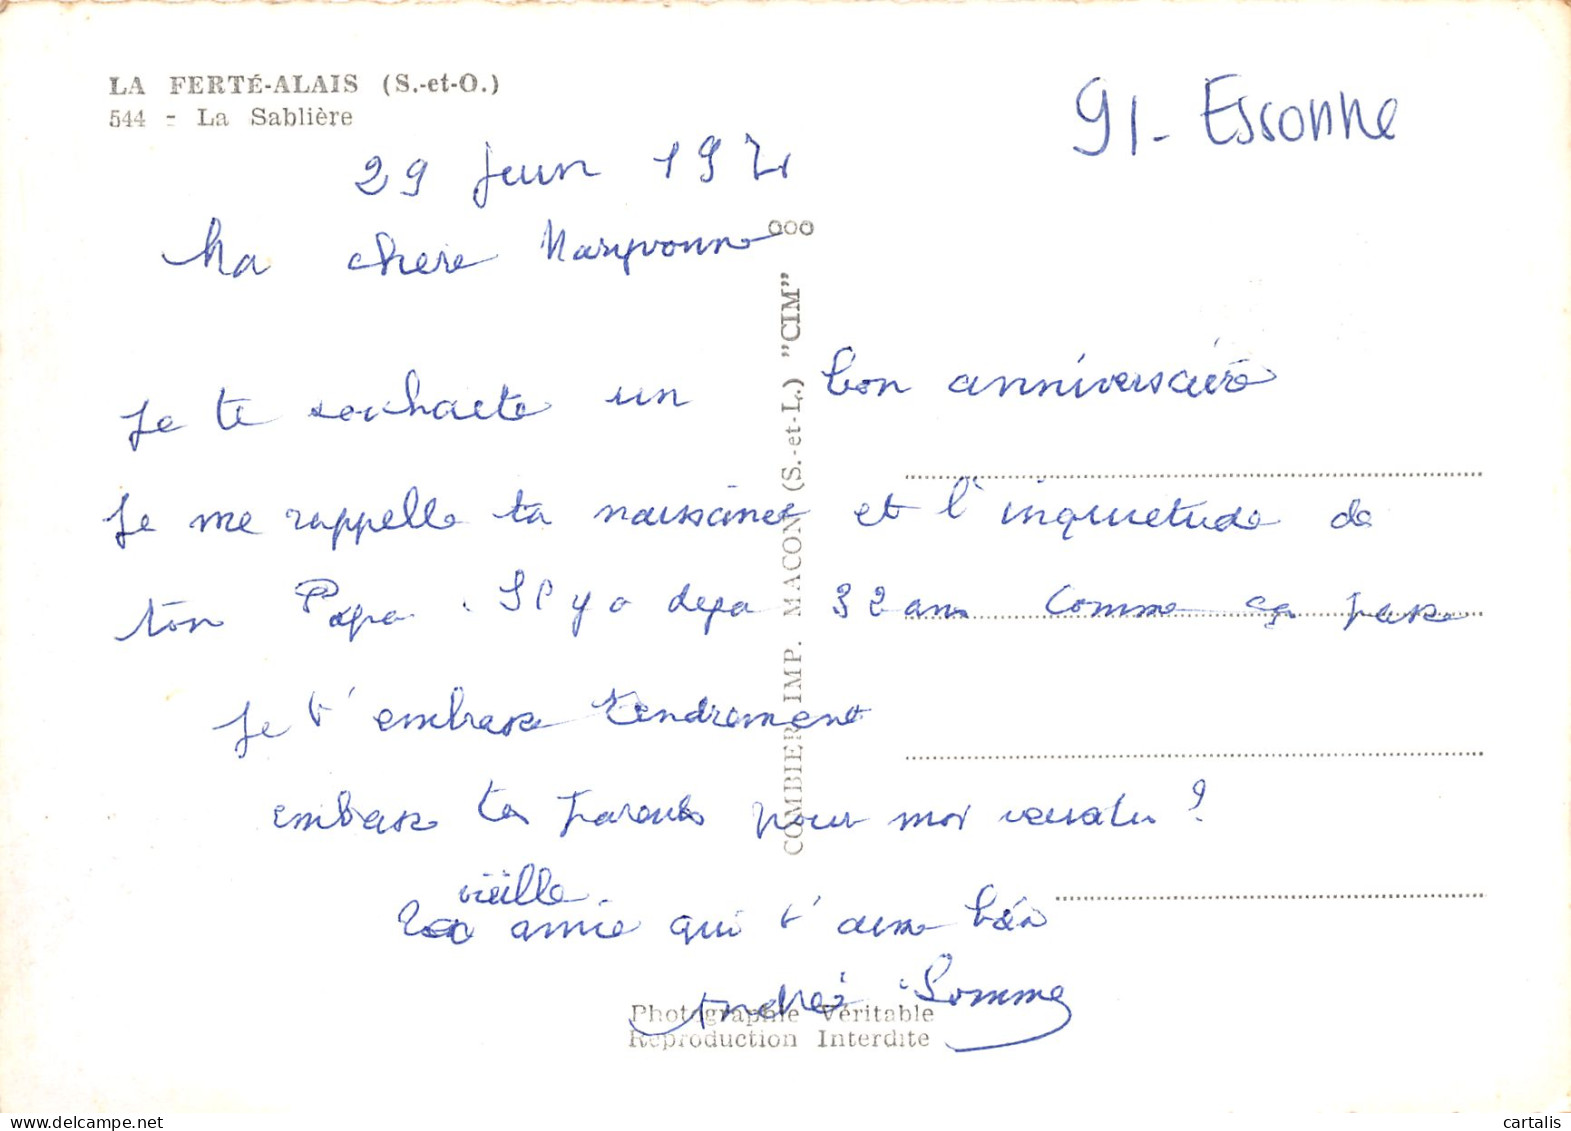 LA FERTÉ-ALAIS (S.-et-O.)
544 - La Sablière
91- Essonne
29 Juin 1971
Ma chere Maryvonne
Je te souhaite un bon anniversaire
Je me rappelle ta naissance et l'inquietude de
ton Papa. Il y a deja 32 ans Comme ça passe
Je t'embrasse tendrement
embrasse tes parents pour moi veux tu ?
vieille
amie qui t'aime bien
Andrée Somme
COMBIER IMP. MACON (S.-et-L.) "CIM"
Photographie Véritable
Reproduction Interdite
cartalis